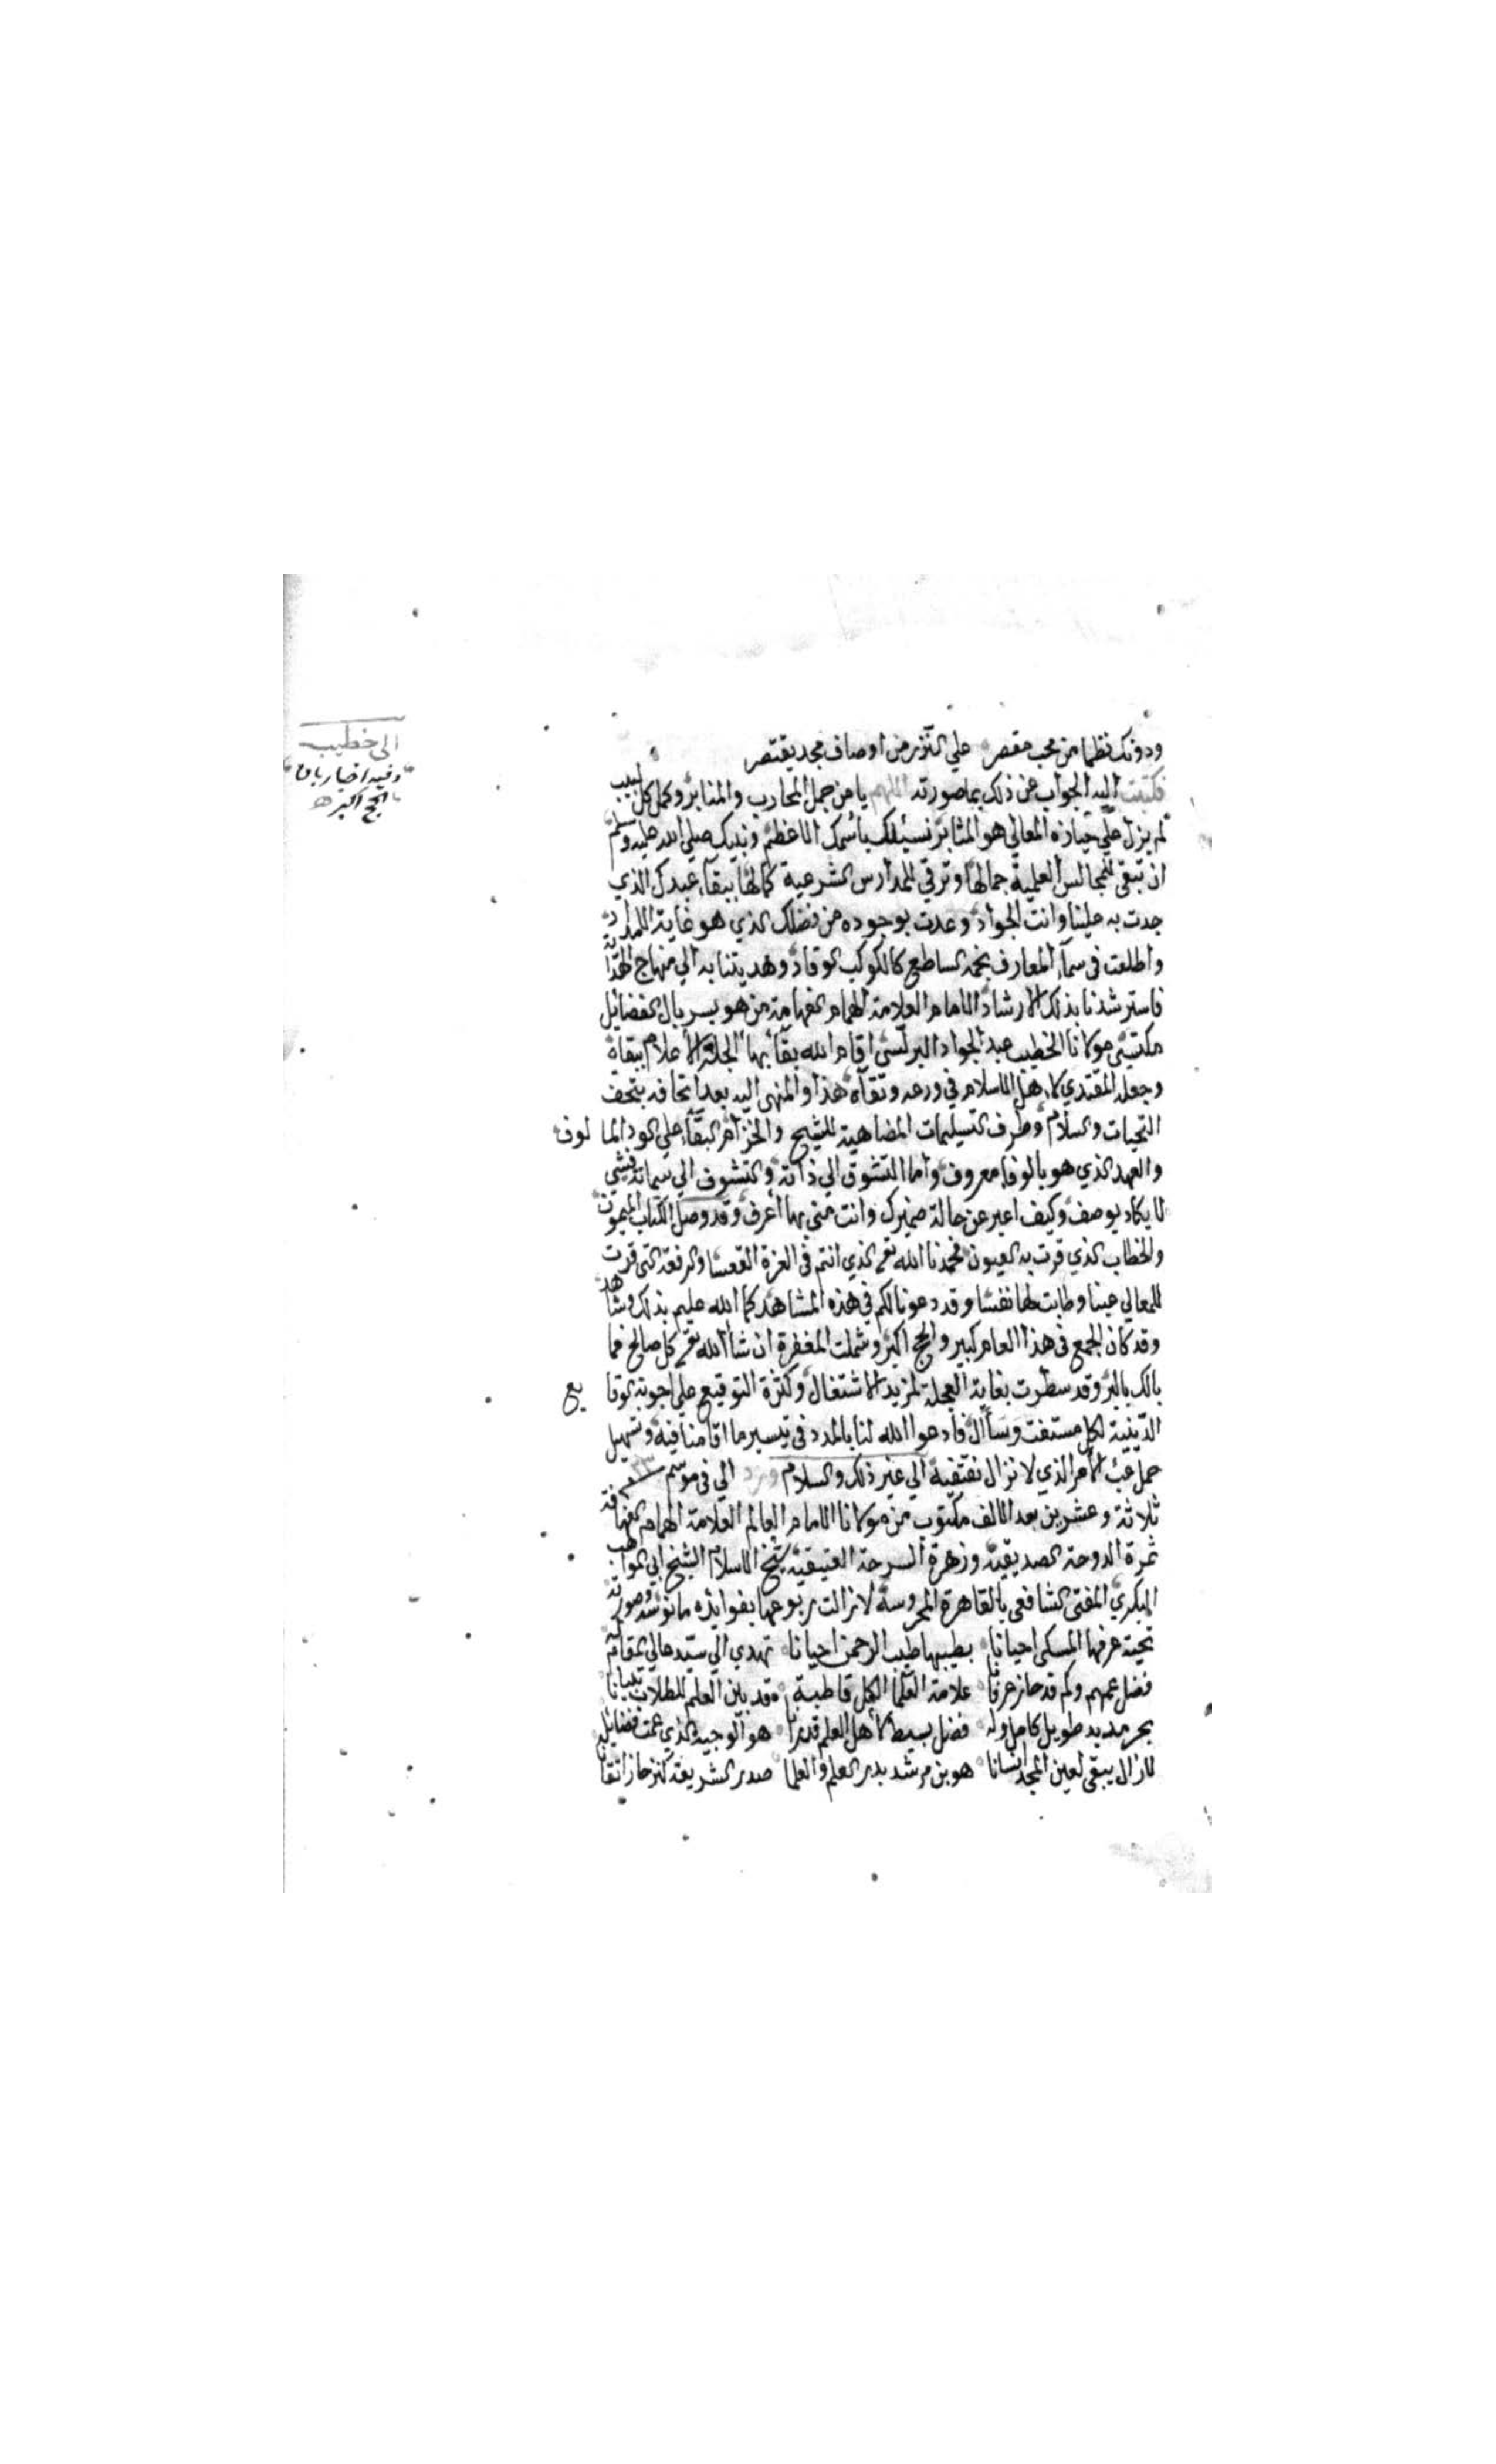 ودونك نظما من محب مقصر علي النزر من اوصاف مجد يقتصر
فكتبت اليه الجواب عن ذلك بما صورته اللهم يا من جمل المحارب والمنابر وكمل كل لبيب
لم يزل علي حيازة المعالي هو المثابر نسئلك باسمك الاعظم ونبيك صلي الله عليه وسلم
ان تبقي للمجالس العلمية جمالها وترقي للمدارس الشرعية كمالها ببقاء عبدك الذي
جدت به علينا وانت الجواد وعدت بوجوده من فضلك الذي هو غاية المراد
واطلعت في سماء المعارف نجمه الساطع كالكوكب الوقاد وهديتنا به الي منهاج الهداية
فاسترشدنا بذلك الارشاد الامام العلامة الهمام الفهامة من هو بسربال الفضائل
مكتسي مولانا الخطيب عبد الجواد البرلسي اقام الله بقائها الجلة الاعلام ببقاه
وجعله المقتدي لاهل الاسلام في ورعه وتقاه هذا والمنهي اليه بعد اتحافه بتحف
التحيات والسلام وطرف التسليمات المضاهية للشيح والخزام البقاء علي الود المالوف
والعهد الذي هو بالوفا معروف واما التشوق الي ذاته والتشوف الي سماته فشي
لا يكاد يوصف وكيف اعبر عن حالة ضميرك وانت مني بها اعرف وقد وصل الكتاب الميمون
والخطاب الذي قرت به العيون فحمدنا الله تع الذي انتم في العزة القعسا والرفعة التي قرت
للمعالي عينا وطابت لها نفسا وقد دعونا لكم في هذه المشاهد كما الله عليم بذلك وشاهد
وقد كان الجمع في هذا العام كبير والحج اكبر وشملت المغفرة ان شا الله تع كل صالح فما
بالك بالبر وقد سطرت بغاية العجلة لمزيد الاشتغال وكثرة التوقيع علي اجوبة الوقايع
الدينية لكل مستفت وسأال فادعوا الله لنا بالمدد في تيسير ما اقامنا فيه وتسهيل
حمل عبء الامر الذي لا نزال نقتفيه الي غير ذلك والسلام وورد الي في موسم ٢٣
ثلاثة وعشرين بعد الالف مكتوب من مولانا الامام العالم العلامة الهمام الفهامة
ثمرة الدوحة الصديقية وزهرة السرحة العتيقية شيخ الاسلام الشيخ ابي المواهب
البكري المفتي الشافعي بالقاهرة المحروسة لا زالت ربوعها بفوائده مانوسة وصورته
تحية عرفها المسكي احيانا بطيبها طيب الرحمن احيانا تهدي الي سيد عالي المقام له
فضل عميم وكم قد حاز عرفانا علامة العلما الكل قاطبة وقد بين العلم للطلاب تبيانا
بحر مديد طويل كامل وله فضل بسيط لاهل العلم قدرا هو الوجيه الذي عمت فضايله
لا زال يبقي لعين المجد انسانا هو بن مرشد بدر العلم والعلما صدر الشريعة كنز حاز اتقانا
الي خطيب
وفيه اخبار بان
الحج اكبر